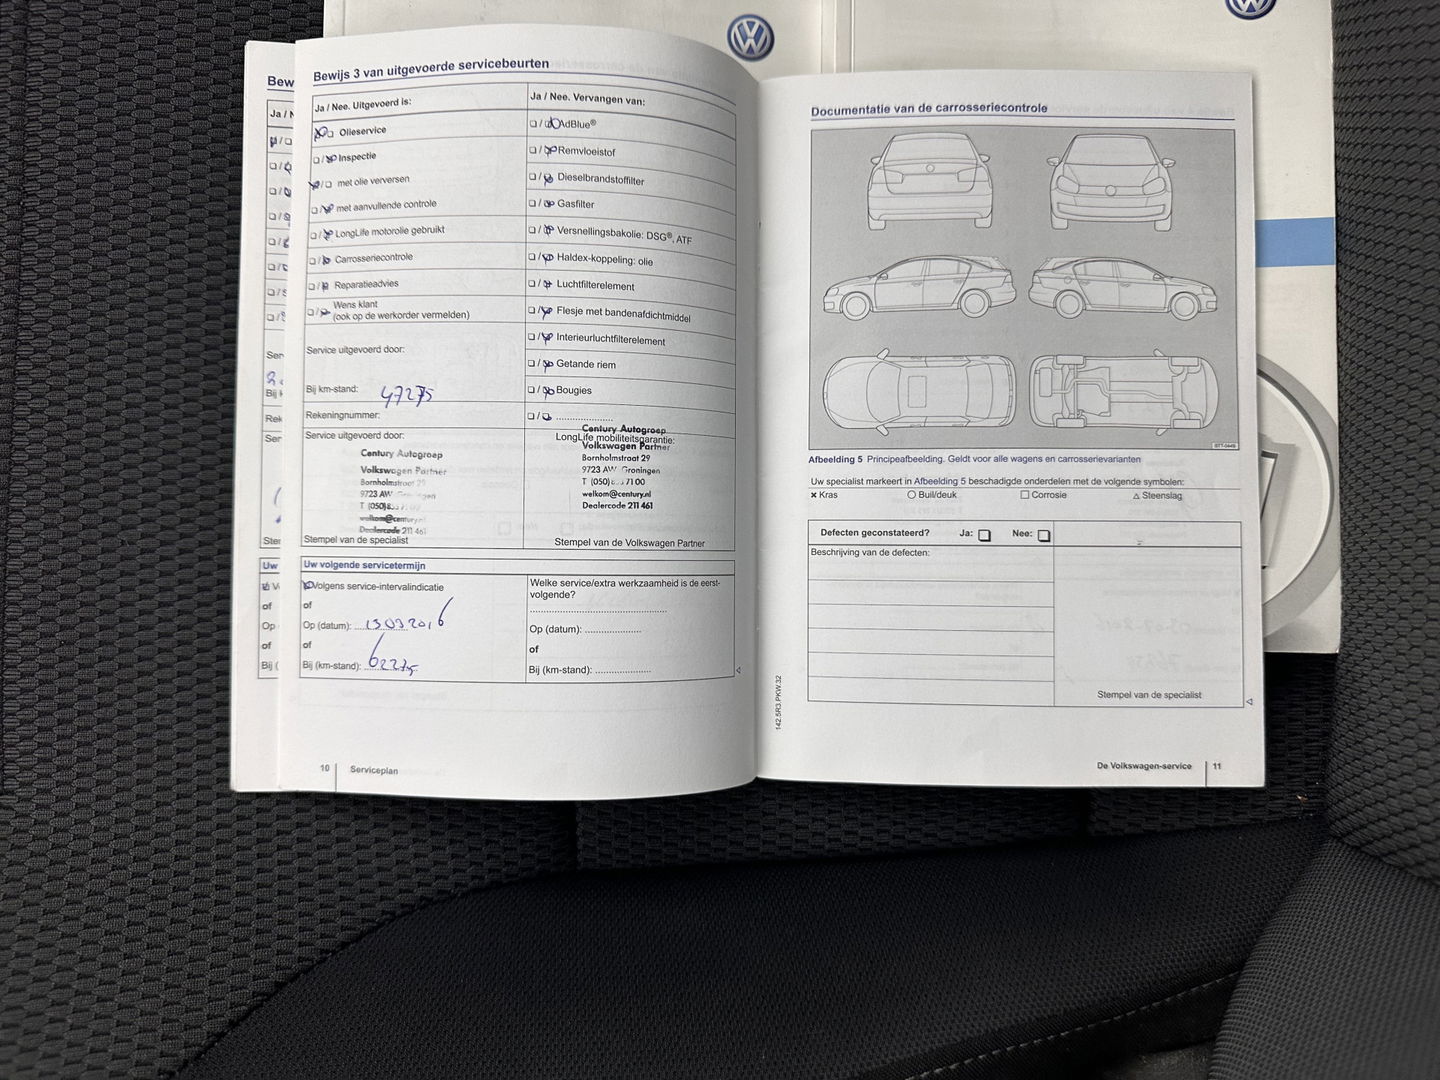 Bew
Ja / N
Ser
Bij k
Rek
Ser
Ster
Uw
of
Op
of
Bij (
Bewijs 3 van uitgevoerde servicebeurten
Ja / Nee. Uitgevoerd is:
Olieservice
Inspectie
met olie verversen
met aanvullende controle
LongLife motorolie gebruikt
Carrosseriecontrole
Reparatieadvies
Wens klant
(ook op de werkorder vermelden)
Service uitgevoerd door:
Bij km-stand: 47275
Rekeningnummer:
Service uitgevoerd door:
Century Autogroep
Volkswagen Partner
Bornholmstraat 29
9723 AW Groningen
T (050)
welkom@century.nl
Dealercode 211 461
Stempel van de specialist
Ja / Nee. Vervangen van:
AdBlue®
Remvloeistof
Dieselbrandstoffilter
Gasfilter
Versnellingsbakolie: DSG®, ATF
Haldex-koppeling: olie
Luchtfilterelement
Flesje met bandenafdichtmiddel
Interieurluchtfilterelement
Getande riem
Bougies
LongLife mobiliteitsgarantie:
Century Autogroep
Volkswagen Partner
Bornholmstraat 29
9723 AW Groningen
T (050) 71 00
welkom@century.nl
Dealercode 211 461
Stempel van de Volkswagen Partner
Uw volgende servicetermijn
Volgens service-intervalindicatie
of
Op (datum): 13 03 2016
of
Bij (km-stand): 62275
Welke service/extra werkzaamheid is de eerst-
volgende?
Op (datum):
of
Bij (km-stand):
10 Serviceplan
142.5R3.PKW.32
Documentatie van de carrosseriecontrole
Afbeelding 5 Principeafbeelding. Geldt voor alle wagens en carrosserievarianten
Uw specialist markeert in Afbeelding 5 beschadigde onderdelen met de volgende symbolen:
Kras Buil/deuk Corrosie Steenslag
Defecten geconstateerd? Ja: Nee:
Beschrijving van de defecten:
Stempel van de specialist
De Volkswagen-service 11